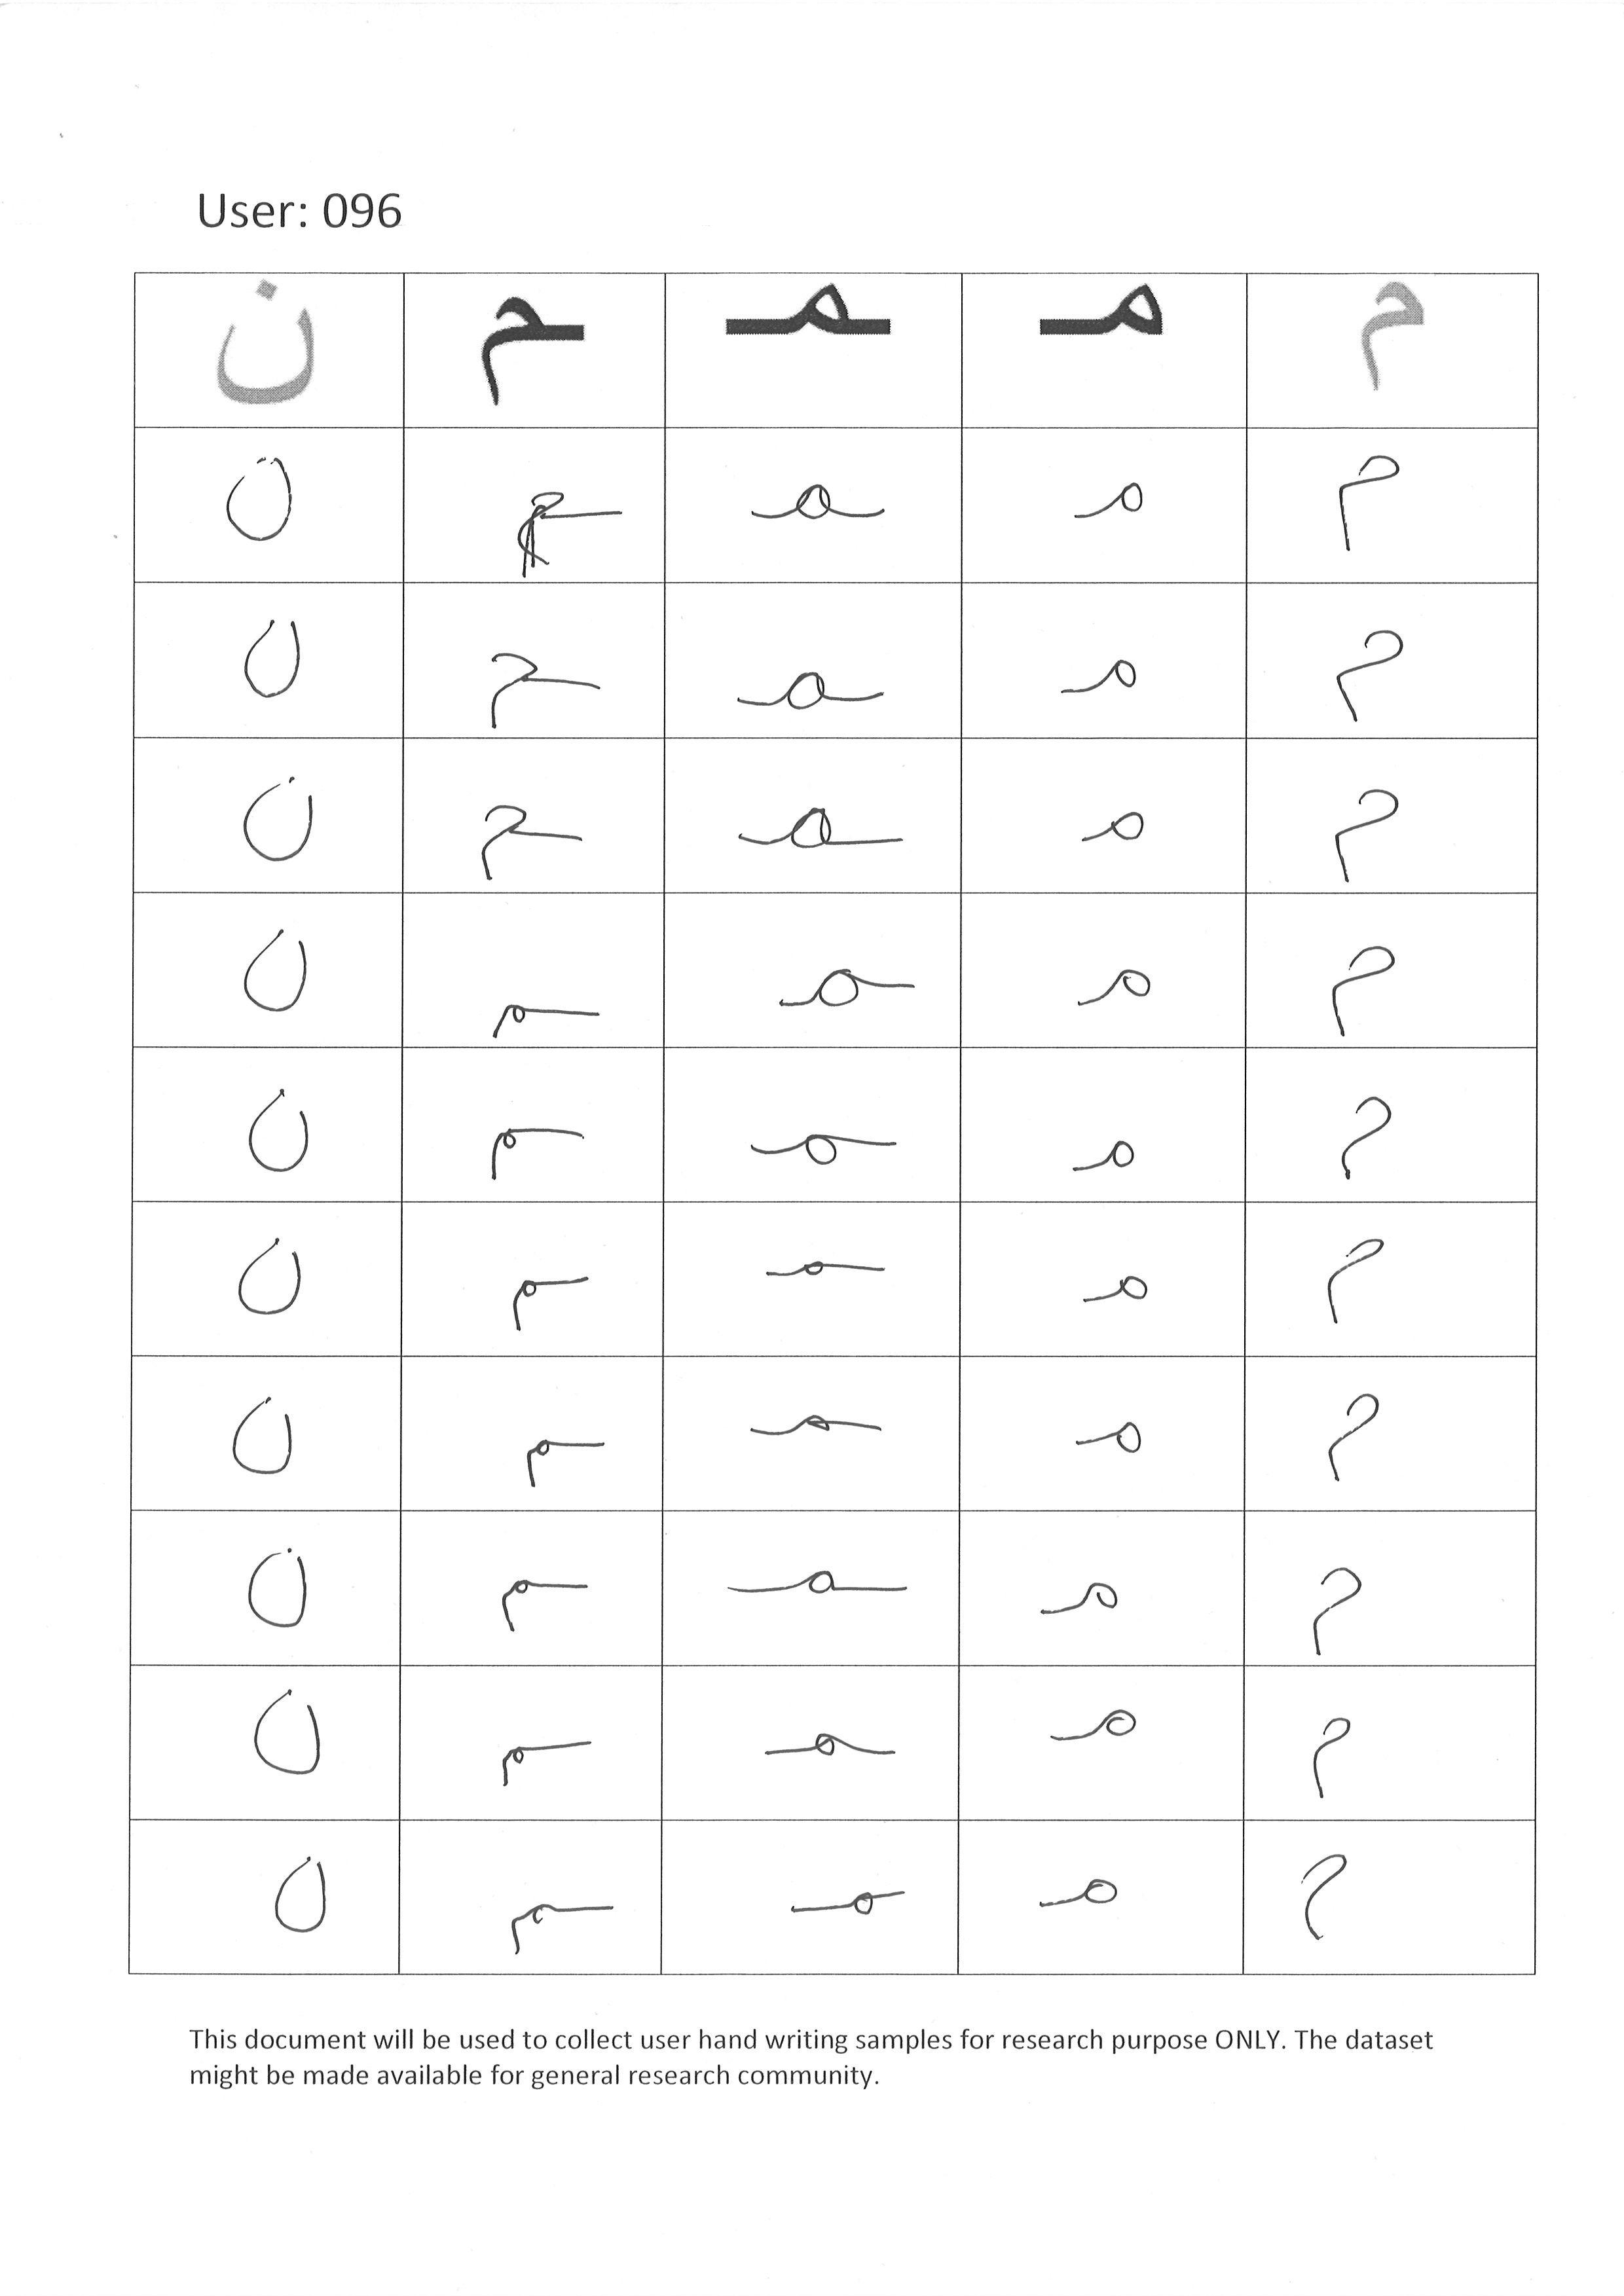 User: 096
م مـ ـمـ ـم ن
م مـ ـمـ ـم ن
م مـ ـمـ ـم ن
م مـ ـمـ ـم ن
م مـ ـمـ ـم ن
م مـ ـمـ ـم ن
م مـ ـمـ ـم ن
م مـ ـمـ ـم ن
م مـ ـمـ ـم ن
م مـ ـمـ ـم ن
م مـ ـمـ ـم ن
This document will be used to collect user hand writing samples for research purpose ONLY. The dataset
might be made available for general research community.